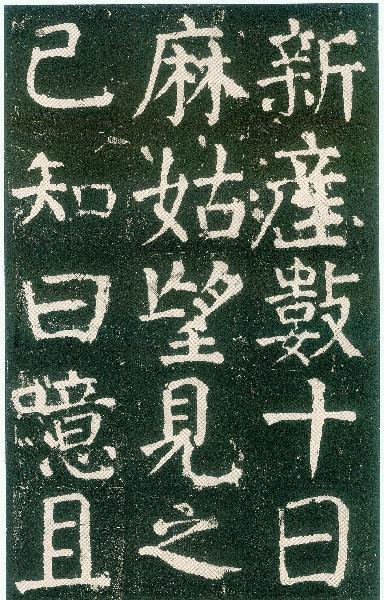 新產數十日
麻姑望見之
已知曰噫且